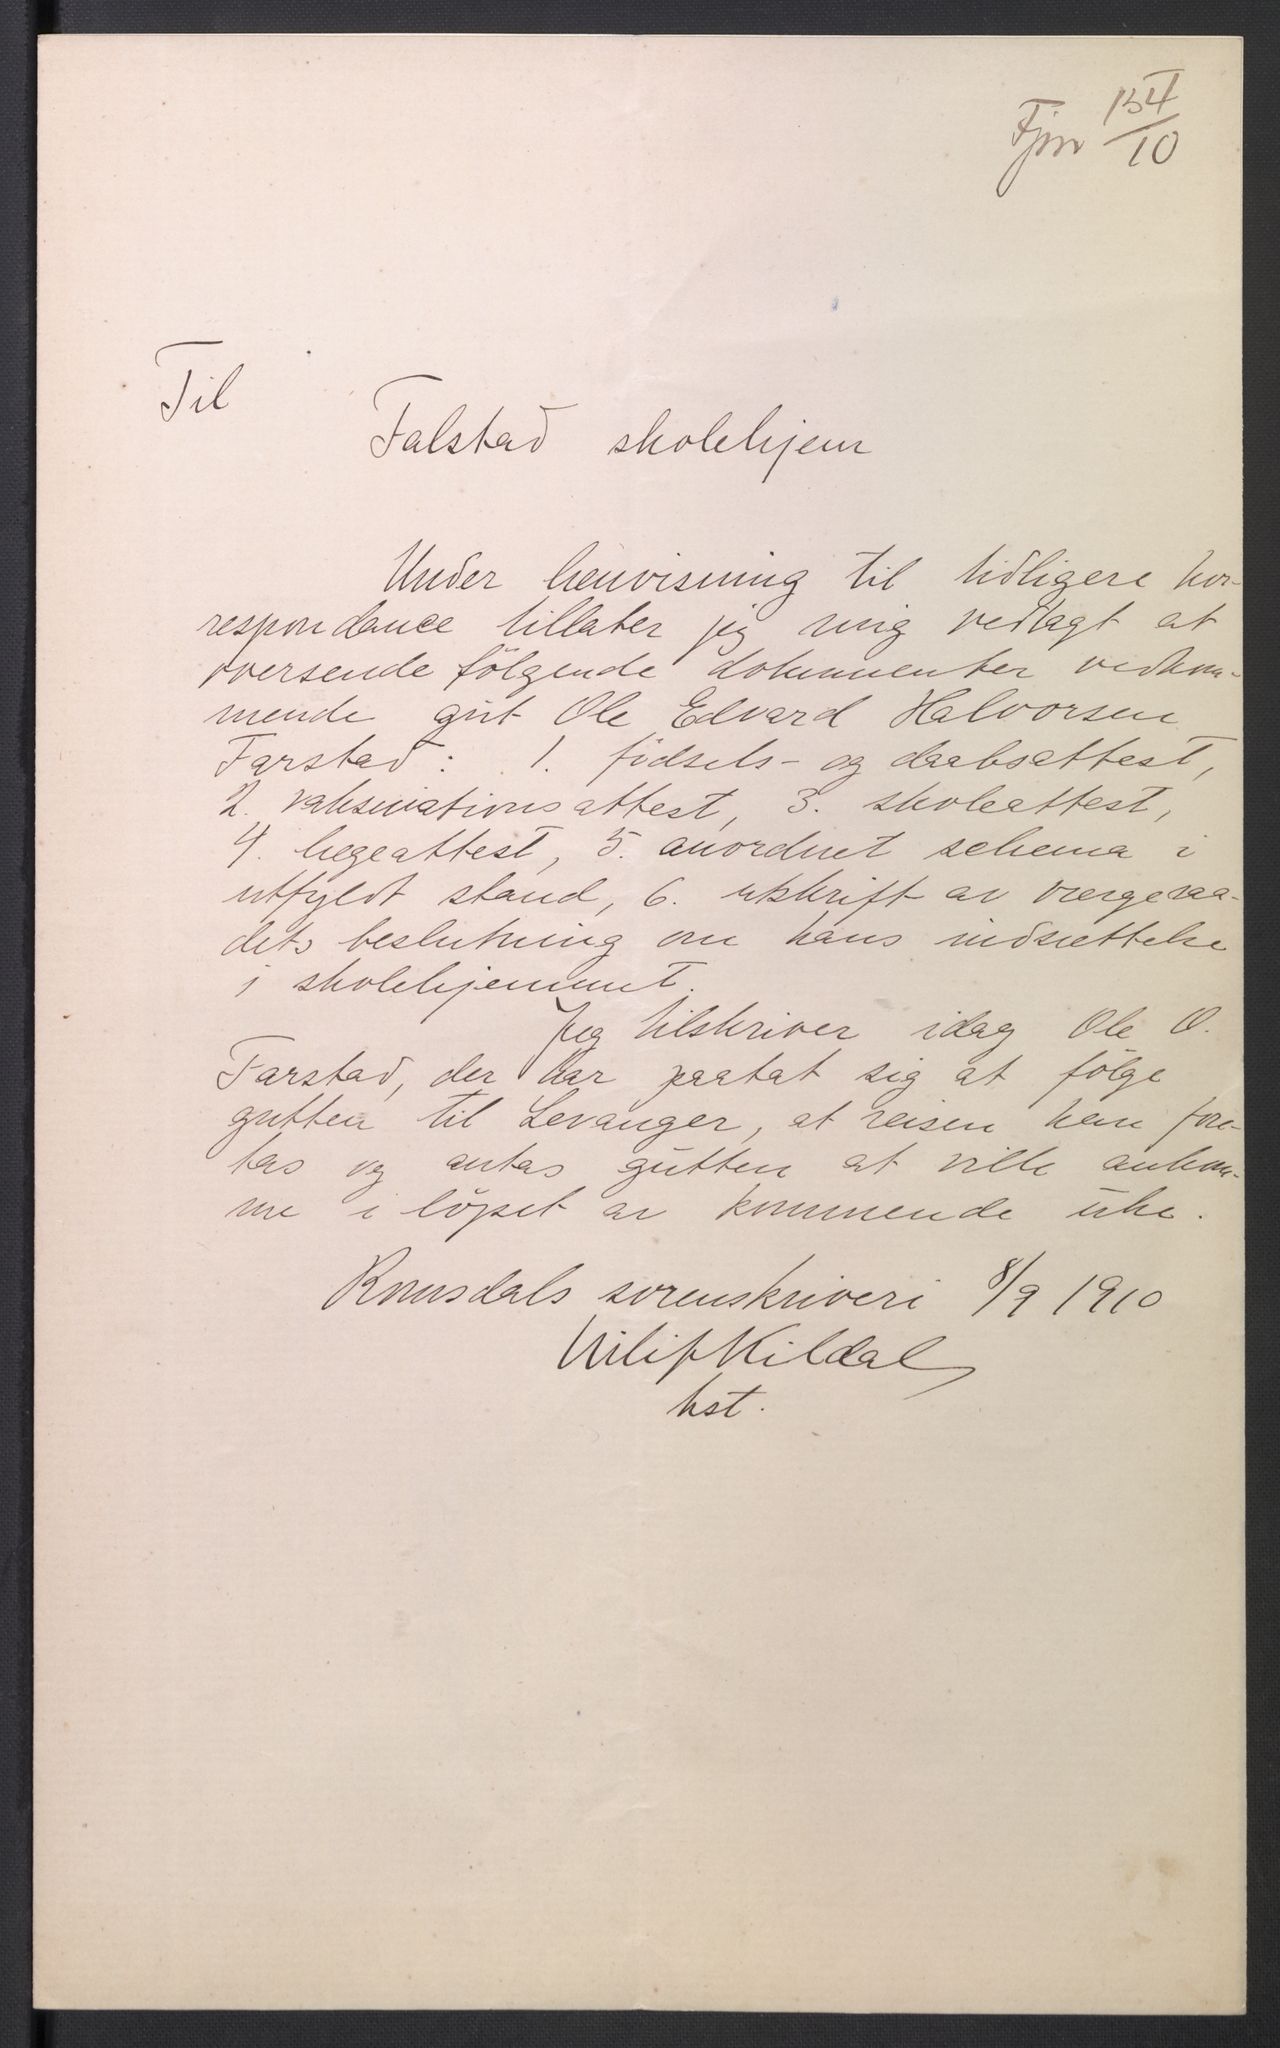 Fjnr 154/10
Til
Falstad skolehjem
Under henvisning til tidligere kor-
respondance tillater jeg mig vedlagt at
oversende följgende dokumenter vedkom-
mende gut Ole Edvard Halvorsen
Farstad: 1. födsels- og daabsattest,
2. vaksinationsattest, 3. skoleattest,
4. lægeattest, 5. anordnet schema i
utfyldt stand, 6. utskrift av vergeraa-
dets beslutning om hans indsættelse
i skolehjemmet.
Jeg tilskriver idag Ole O.
Farstad, der har paatat sig at følge
gutten til Levanger, at reisen kan fore-
tas og antas gutten at ville ankom-
me i löpet av kommende uke.
Romsdals sorenskriveri 8/9 1910
Kildal
kst.